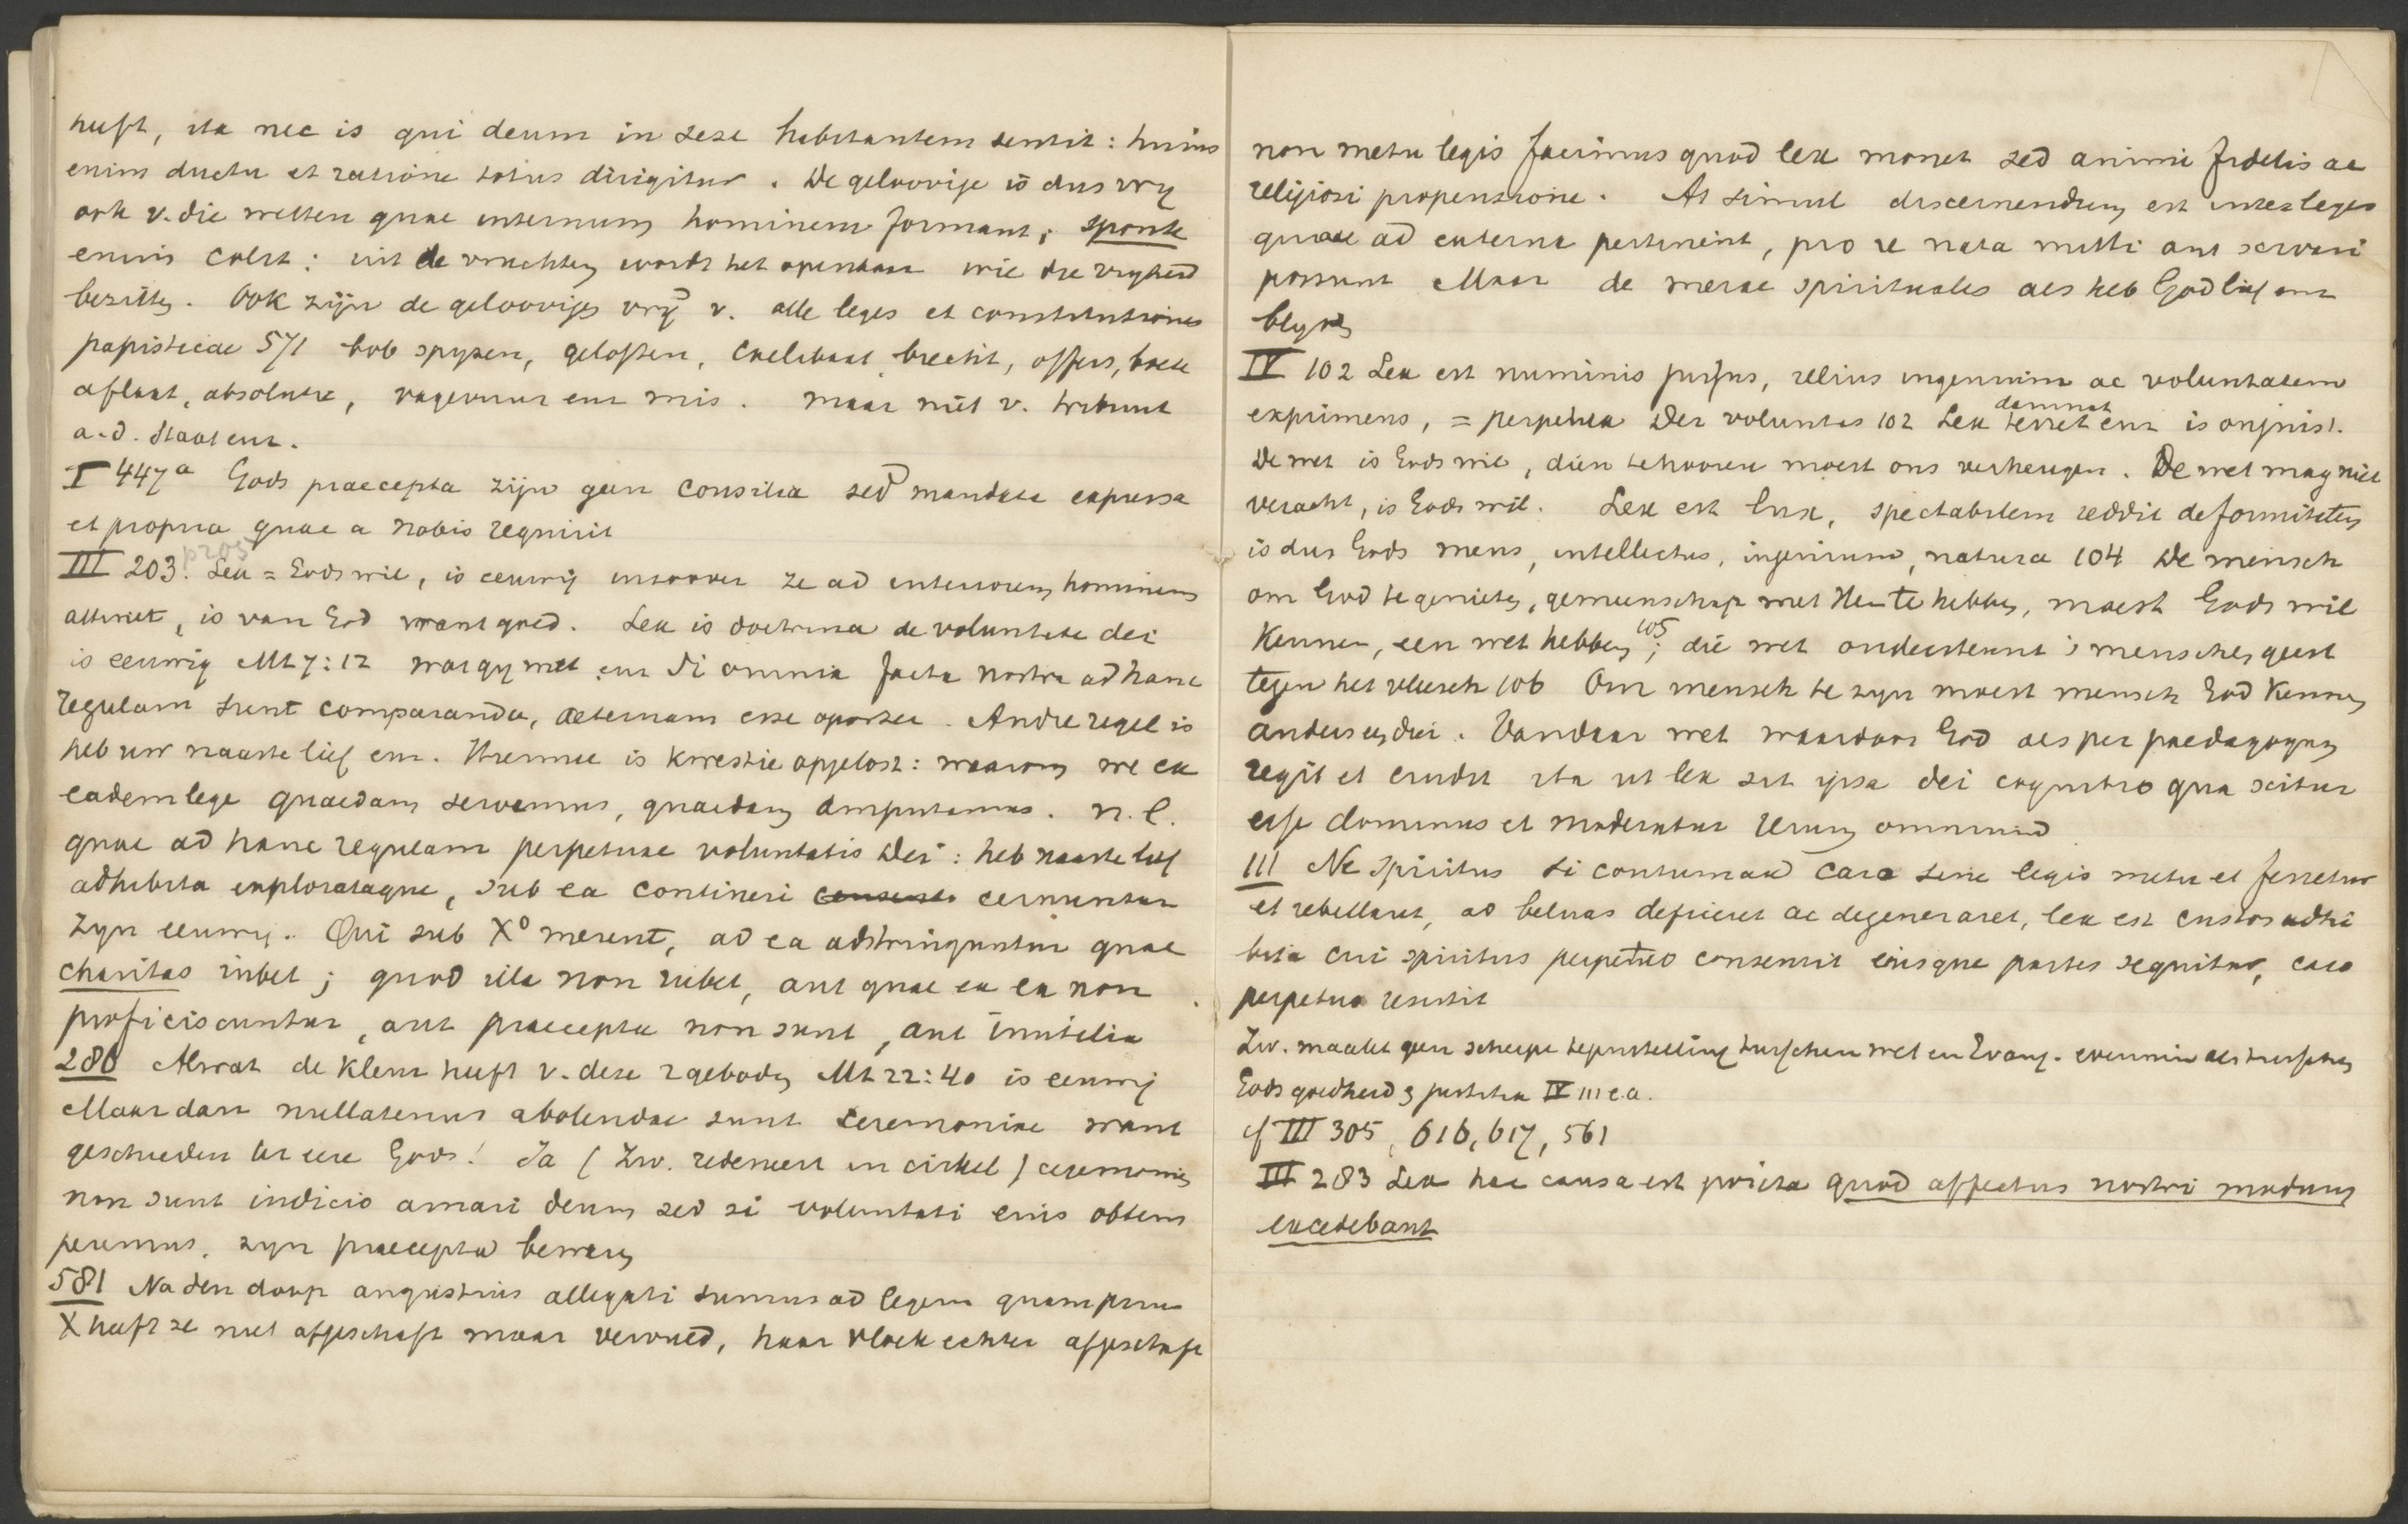 heeft, ita nec is qui deum in sese habitantem sentit: huius
enim ductu et ratione totus dirigitur. De geloovige is dus vrij
ook v. die wetten quae internum hominem formant; sponte
enim colit: uit de vruchten wordt het openbaar wie die vrijheid
bezitten. Ook zijn de geloovigen vrij v. alle leges et constitutiones
papisticae 571 bvb spyzen, geloften, caelibaat, biecht, offers, boete
aflaat, absolutie, vagevuur enz mis. maar niet v. tribuut
a. d. Staat enz.
I 447a Gods praecepta zijn geen consilia sed mandata expressa
et propria quae a nobis requirit
III 203. Lex = Gods wil, is eeuwig inzoover ze ad interiorem hominem
attinet, is van God want goed. Lex is doctrina de voluntate dei
is eeuwig Mt 7:12 wat gij wilt enz Si omnia facta nostra ad hanc
regulam sunt comparanda, aeternam esse oportet. Andre regel is
heb uw naaste lief enz. Hiermee is kwestie opgelost: waarom we ex
eadem lege quaedam servemus, quaedam amputemus. n.l.
quae ad hanc regulam perpetuae voluntatis Dei: heb naaste lief
adhibita explorataque, sub ea contineri cernuntur
zyn eeuwig. Qui sub Xo merent, ad ea adstringuntur quae
charitas iubet; quod illa non iubet, aut quae ex ea non
proficiscuntur, aut praecepta non sunt, aut inutilia
280 Alwat de klem heeft v. deze 2 geboden Mt 22:40 is eeuwig
Maar dan nullatenus abolendae sunt ceremoniae want
geschieden ter eere Gods! Ja (Zw. redeneert in cirkel) ceremonies
non sunt indicio amari deum sed si voluntati eius obtem
peremus, zyn praecepta bewaren
581 Na den doop angustius allegati sumus ad legem quam prius
X heeft ze niet afgeschaft maar vervuld, haar vloek echter afgeschaft
non metu legis facimus quod lex monet sed animi fidelis ac
religiosi propensione. At simul discernendum est inter leges
quae ad externa pertinent, pro re nata mitti aut servari
possunt Maar de merae spirituales als heb God lief enz
blyven
IV 102 Lex est numinis jussus, illius ingenium ac voluntatem
exprimens, = perpetua Dei voluntas 102 Lex terret damnat enz is onjuist.
De wet is Gods wil, dien te hooren moest ons verheugen. De wet mag niet
veracht, is Gods wil. Lex est lux, spectabilem reddit deformitatem
is dus Gods mens, intellectus, ingenium, natura 104 De mensch
om God te genieten, gemeenschap met Hem te hebben, moest Gods wil
kennen, een wet hebben 105; die wet ondersteunt 's menschen geest
tegen het vleesch 106 Om mensch te zyn moest mensch God kennen
anders een dier. Vandaar wet waardoor God als per paedagogum
regit et erudit ita ut lex sit ipsa dei cognitio qua scitur
esse dominus et moderatur rerum omnium
111 Ne spiritus si contumax caro sine legis metu et ferretur
et rebellaret, ad beluas deficeret ac degeneraret, lex est custos adhi
bita cui spiritus perpetuo consentit eiusque partes sequitur, caro
perpetuo resistit
Zw. maakt geen scherpe tegenstelling tusschen wet en Evang. evenmin als tusschen
Gods goedheid & justitia IV 111 e.a.
cf III 305, 616, 617, 561
III 283 Lex hac causa est posita quod affectus nostri modum
excedebant